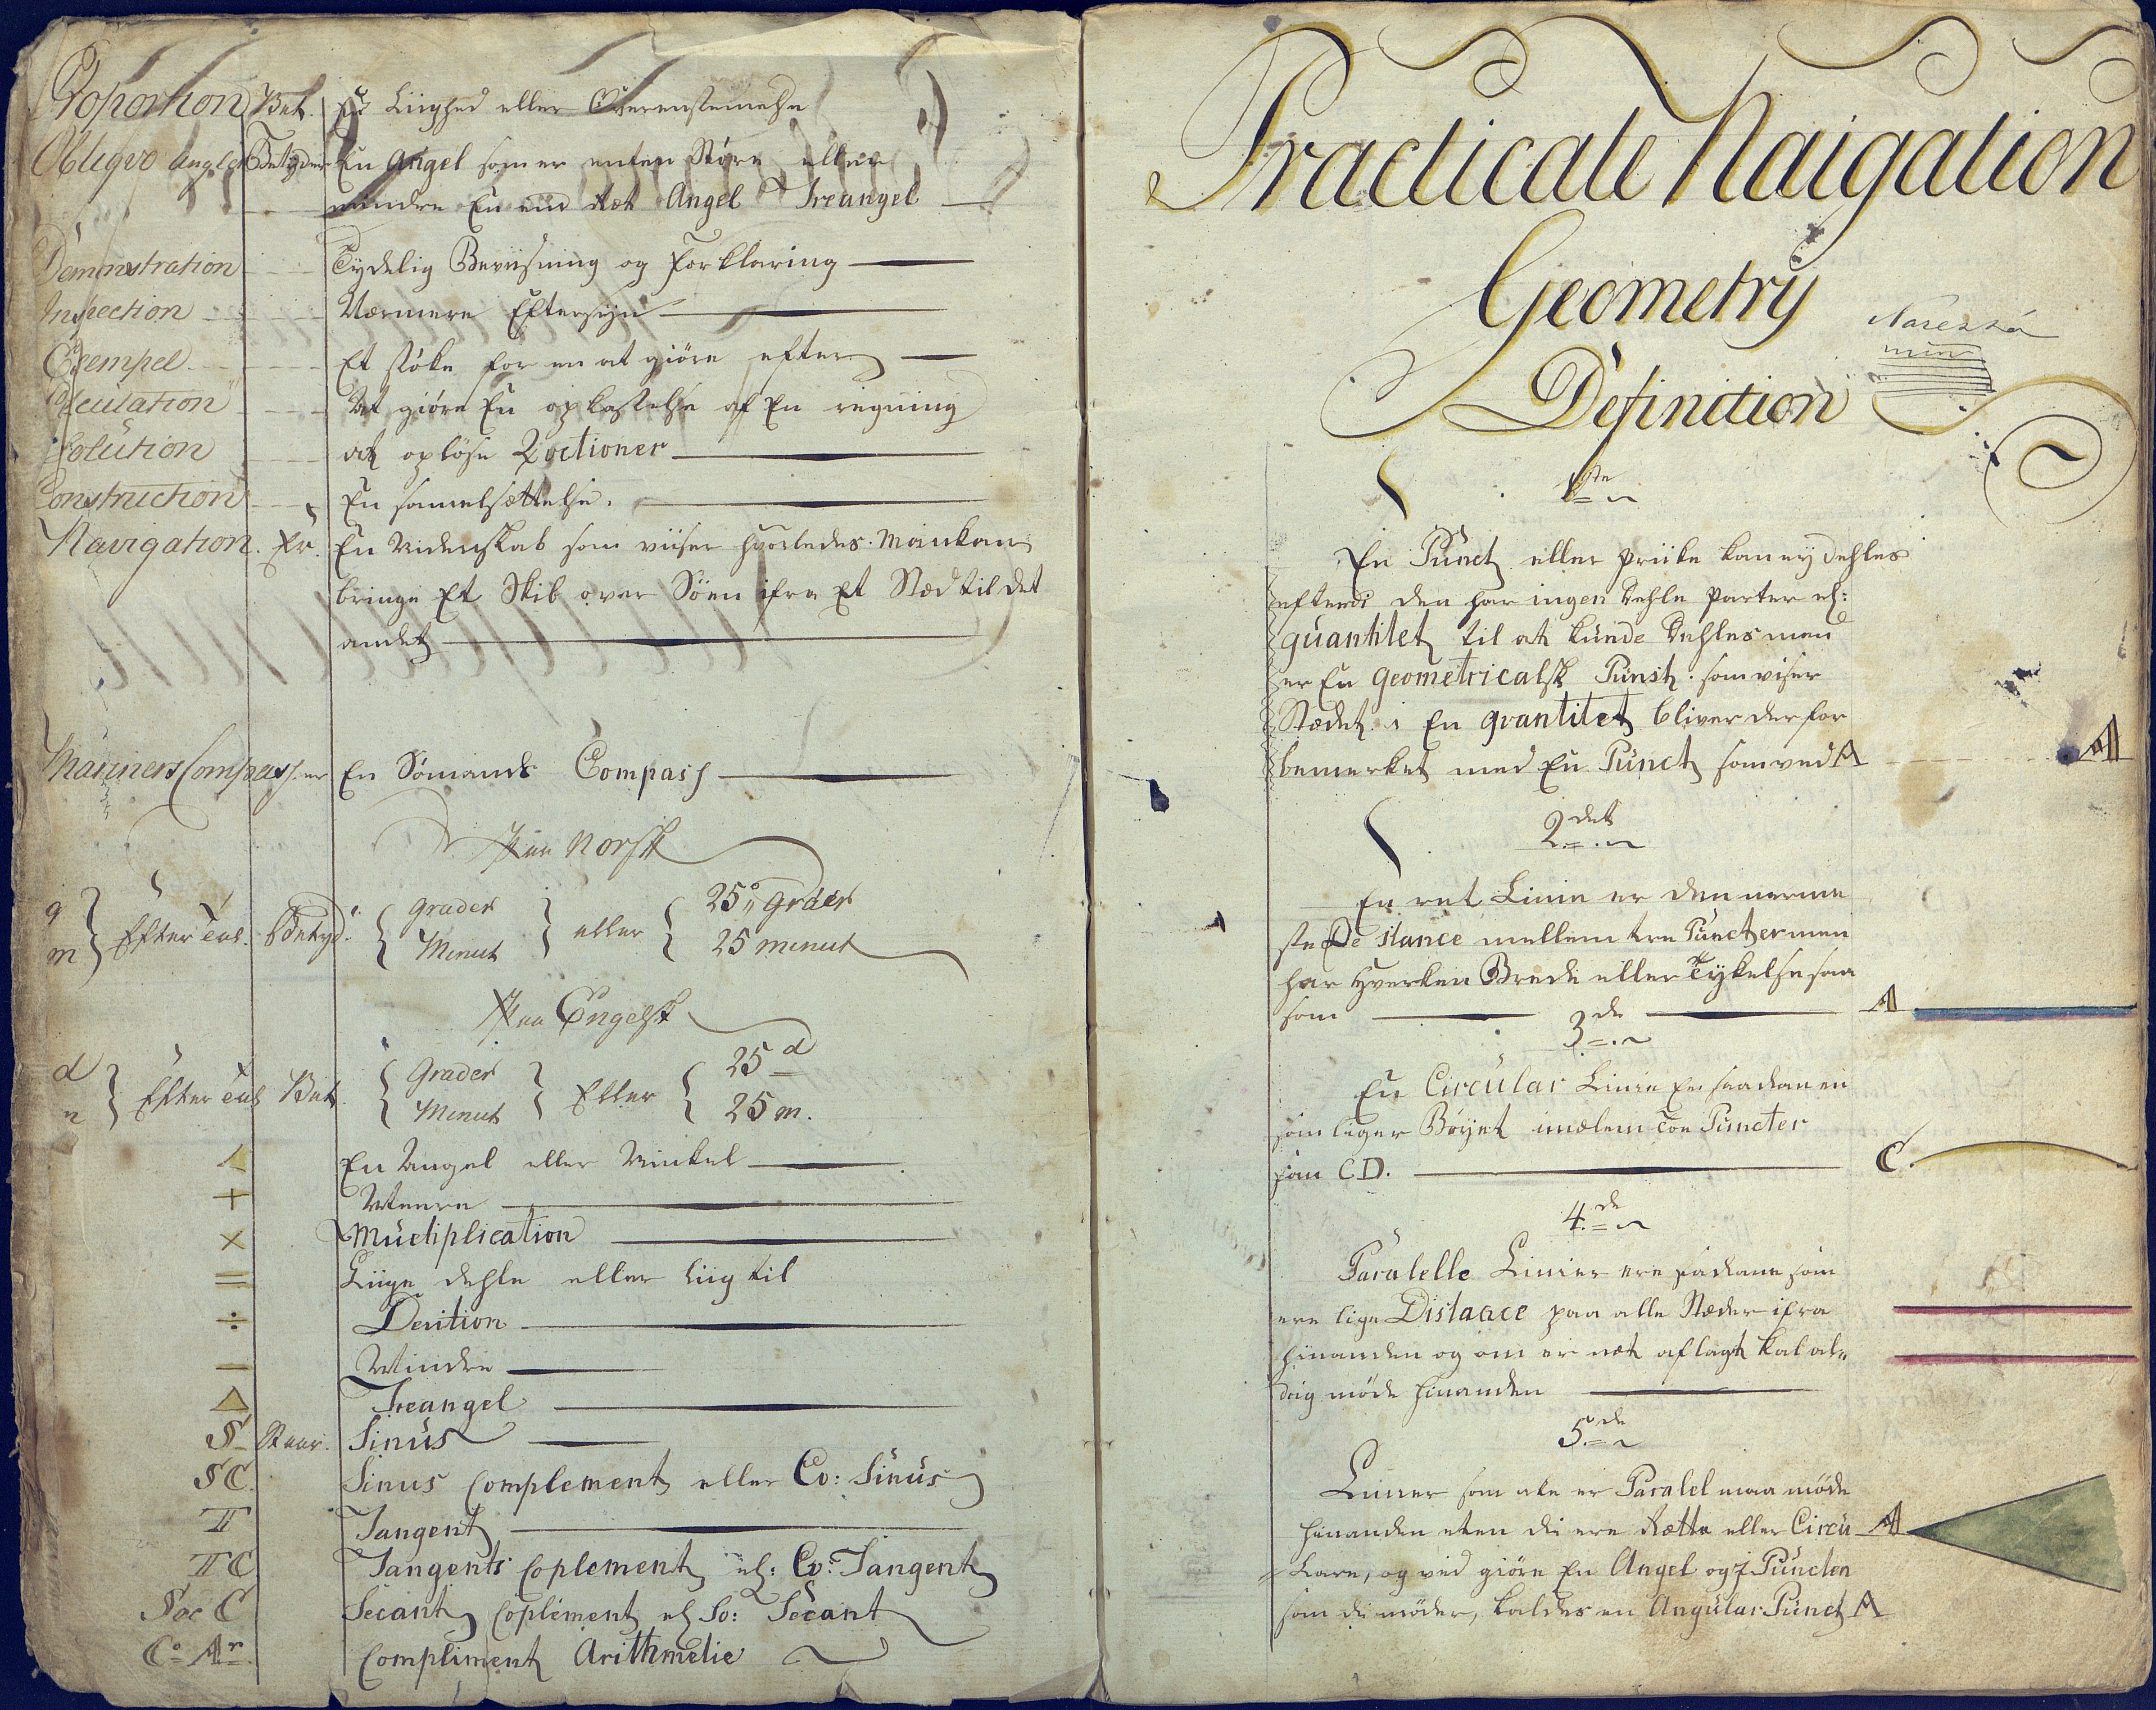 Proportion Bet. En Liighed eller Overenstemelse
Obliqvo Angler Betyder En Angel som er enten Støre eller
mindre En end Ræt Angel Treangel
Demonstration Tydelig Beviisning og Forklaring
Inspection Nærmere Eftersyn
Exempel Et støke for en at giöre efter
Calculation At giöre En opkastelse af En regning
Solution at opløse Qvctioner
Construction En samelsættelse.
Navigation. Er. En Videnskab som viiser hvorledes Mankan
bringe Et Skib over Söen ifra Et Stæd til det
andet
Mariners Compass er En Sömands Compass
Paa Norsk
g
m } Efter Tal. Betyd. { Grader Minut } eller { 25° Grader 25 minut
Paa Engelsk
d
m } Efter Tal Bet. { Grader Minut } Eller { 25 d 25 m.
∠ En Angel eller Vinkel
+ Meere
× Mutiplication
= Liige dehle eller liig til
÷ Devition
— Mindre
△ Treangel
S Staar. Sinus
SC. Sinus Complement eller Co: Sinus
T Tangent
TC Tangents Coplement el: Co: Tangent
Sec C Secant Coplement el So: Secant
Co Ar. Compliment Arithmetic
Practicale Naigation
Geometry
Definition
1ste
En Punct eller priike kan ey dehles
efterdi den har ingen dehle Parter el:
quantitet til at kunde dehles men
er En Geometricalsk Punct som viser
Stædet i En qvantitet bliver derfor
bemerket med En Punct som ved A
A
2det
En ret Linie er den nerme
ste De stance mellem tve Puncter men
har Hverken Brede eller Tykelse saa
som
A
3de
En Circular Linie En saadan en
som liger Bøyet imælem toe Puncter
som CD.
C.
4de
Paralelle Linier ere sadane som
ere lige Distance paa alle Stæder ifra
hinanden og om er ræt aflagt kal al„
drig møde hinanden
5de
Linier som ike er Paralel maa møde
hinanden eten di ere Rætte eller Circu
A
Lare, og ved giöre En Angel og i Puncten
som di møder, kaldes en Angular Punct A